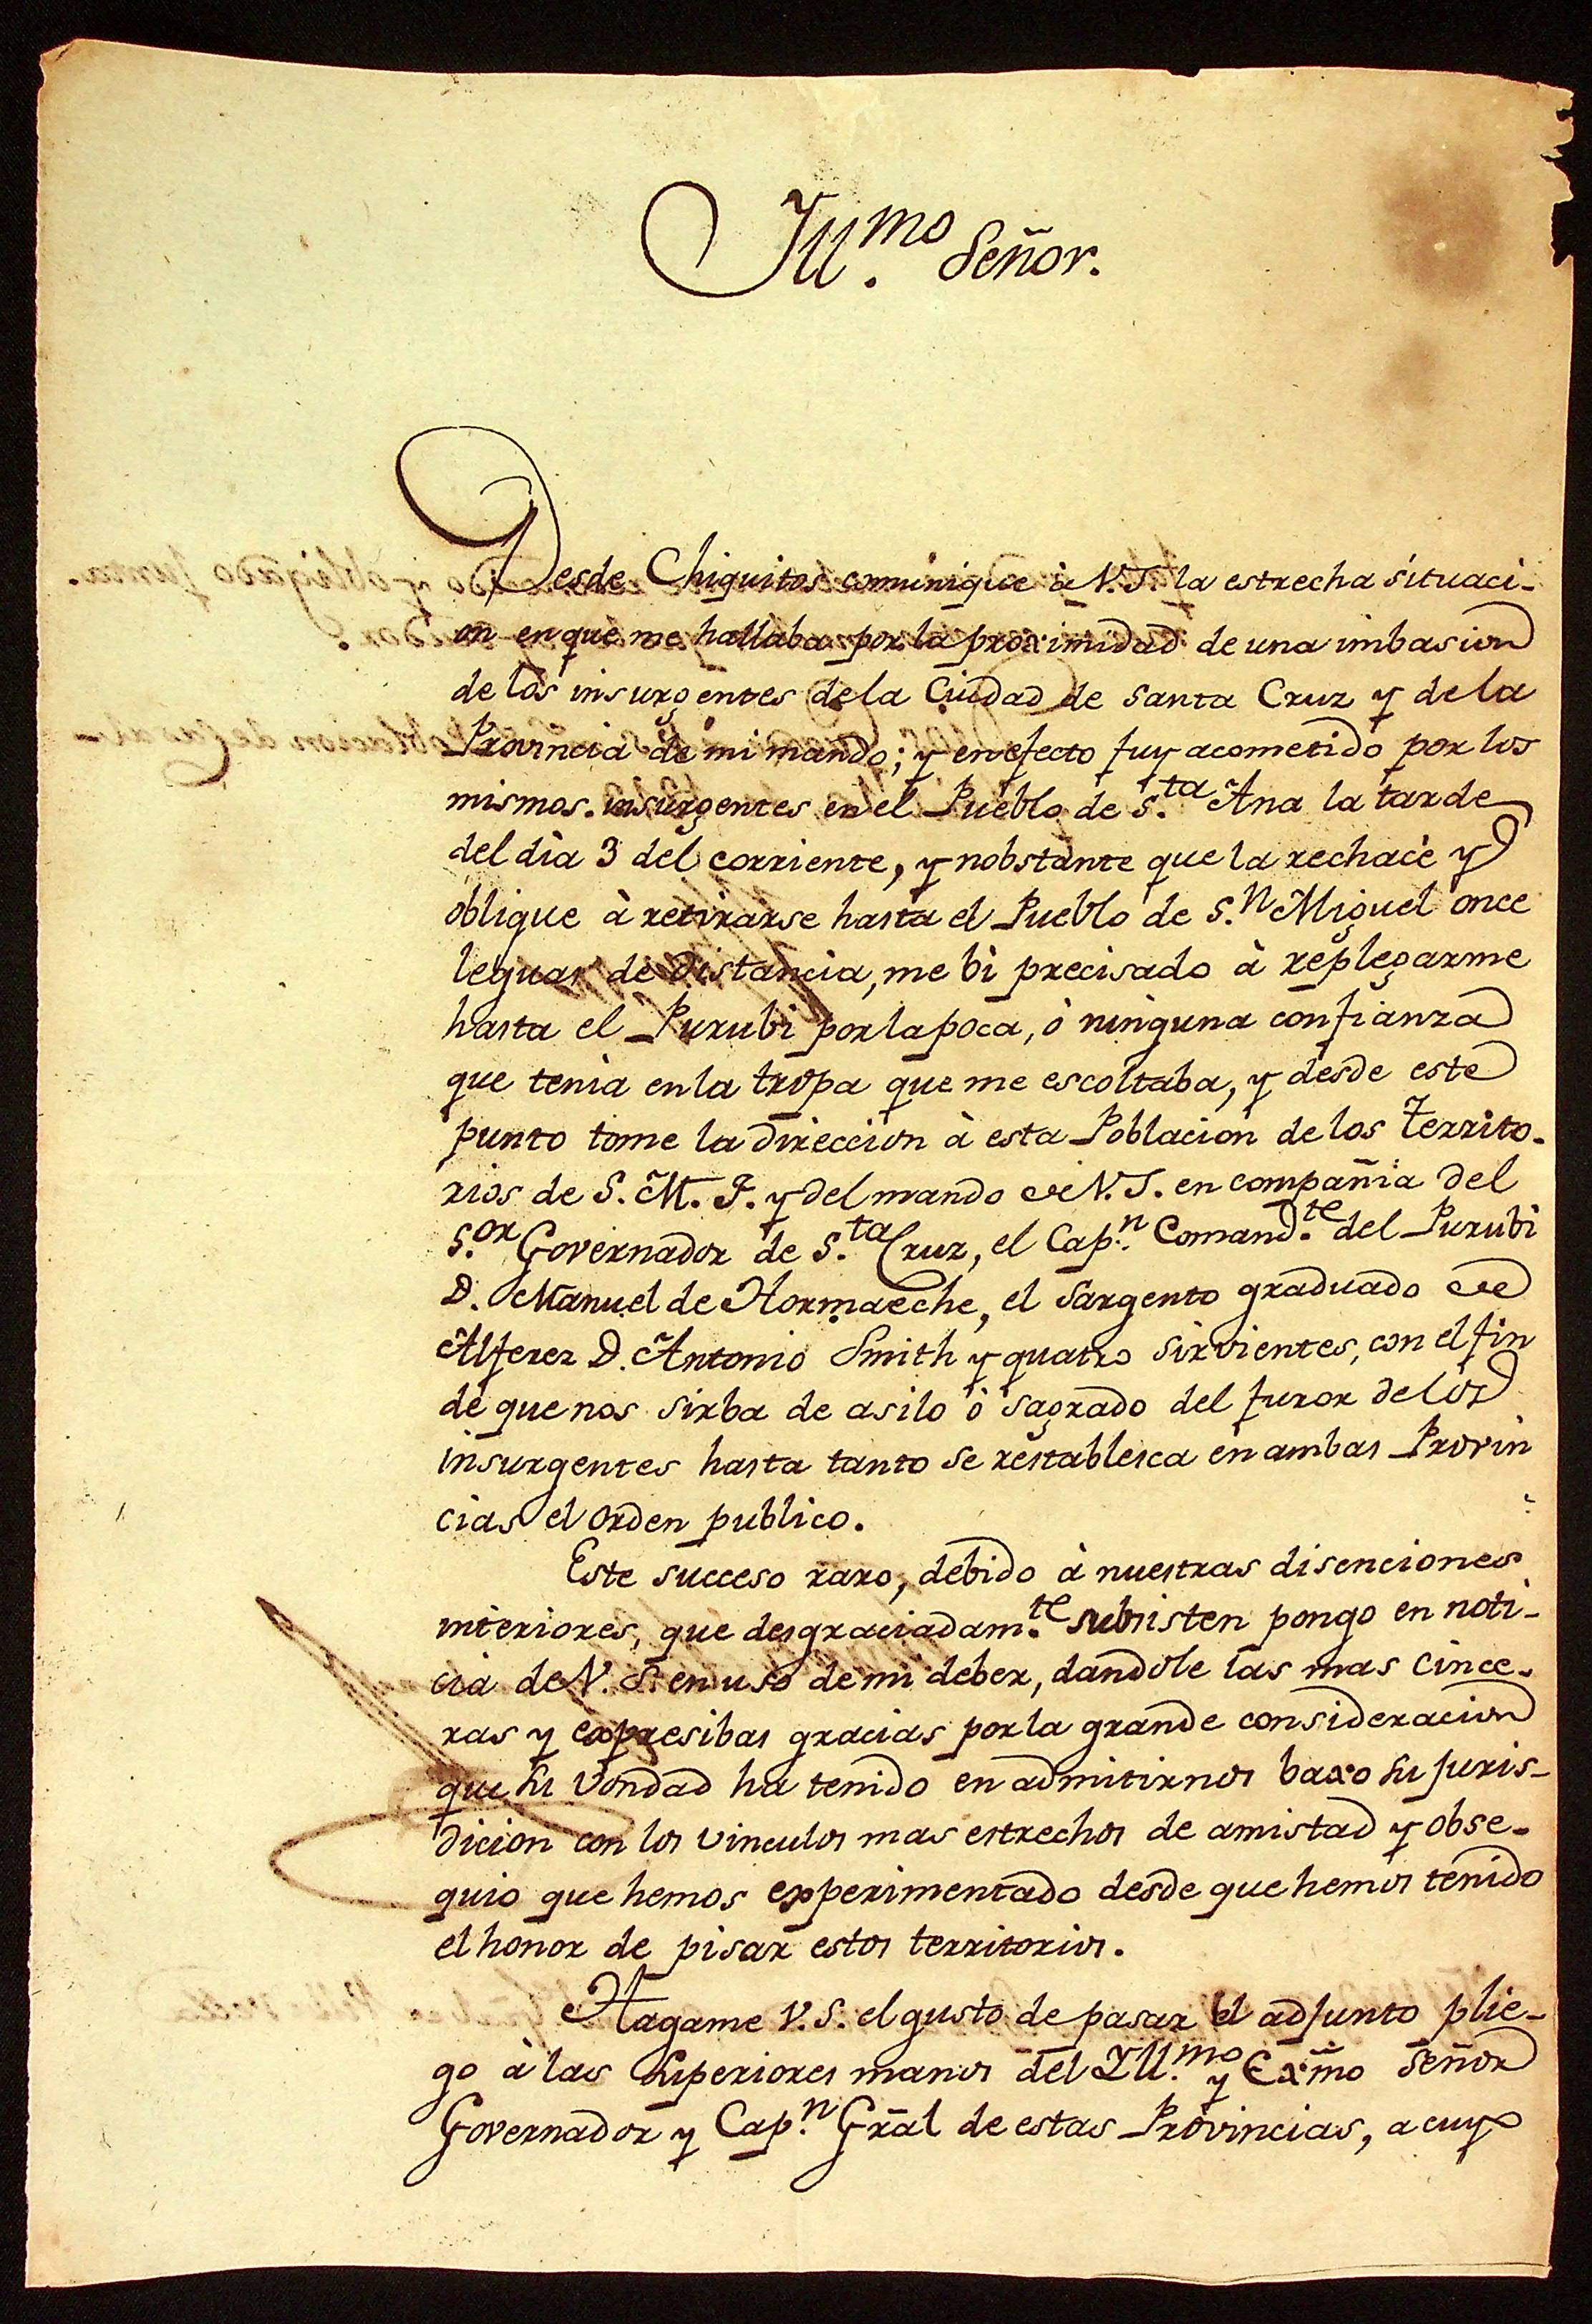 Ill.mo Señor.
Desde Chiquitos comunique à V. S. la estrecha situaci-
on en que me hallaba por la proximidad de una imbasion
de los insurgentes de la Ciudad de Santa Cruz y de la
Provincia de mi mando; y en efecto fuy acometido por los
mismos insurgentes en el Pueblo de S.ta Ana la tarde
del dìa 3 del corriente, y nobstante que la rechacè y
obligue à retirarse hasta el Pueblo de S.n Miguel once
leguas de distancia, me bì precisado à replegarme
hasta el Purubi por la poca, ò ninguna confianza
que tenìa en la tropa que me escoltaba, y desde este
punto tome la direccion à esta Poblacion de los Territo-
rios de S. M. F. y del mando de V. S. en compañia del
S.or Governador de S.ta Cruz, el Cap.n Comand.te del Purubi
D. Manuel de Hormaeche, el Sargento graduado de
Alferez D. Antonio Smith y quatro sirvientes, con el fin
de que nos sirba de asilo ò sagrado del furor de los
insurgentes hasta tanto se restablesca en ambas Provin
cias el orden publico.
Este succeso raro, debido à nuestras disenciones
interiores, que desgraciadam.te subsisten pongo en noti-
cia de V. S. en uso de mi deber, dandole las mas cince-
ras y expresibas gracias por la grande consideracion
que su vondad ha tenido en admitirnos baxo su juris-
dicion con los vinculos mas estrechos de amistad y obse-
quio que hemos experimentado desde que hemos tenido
el honor de pisar estos territorios.
Hagame V. S. el gusto de pasar el adjunto plie-
go à las superiores manos del Ill.mo y Exm̃o Señor
Governador y Cap.n Grãl de estas Provincias, a cuyo